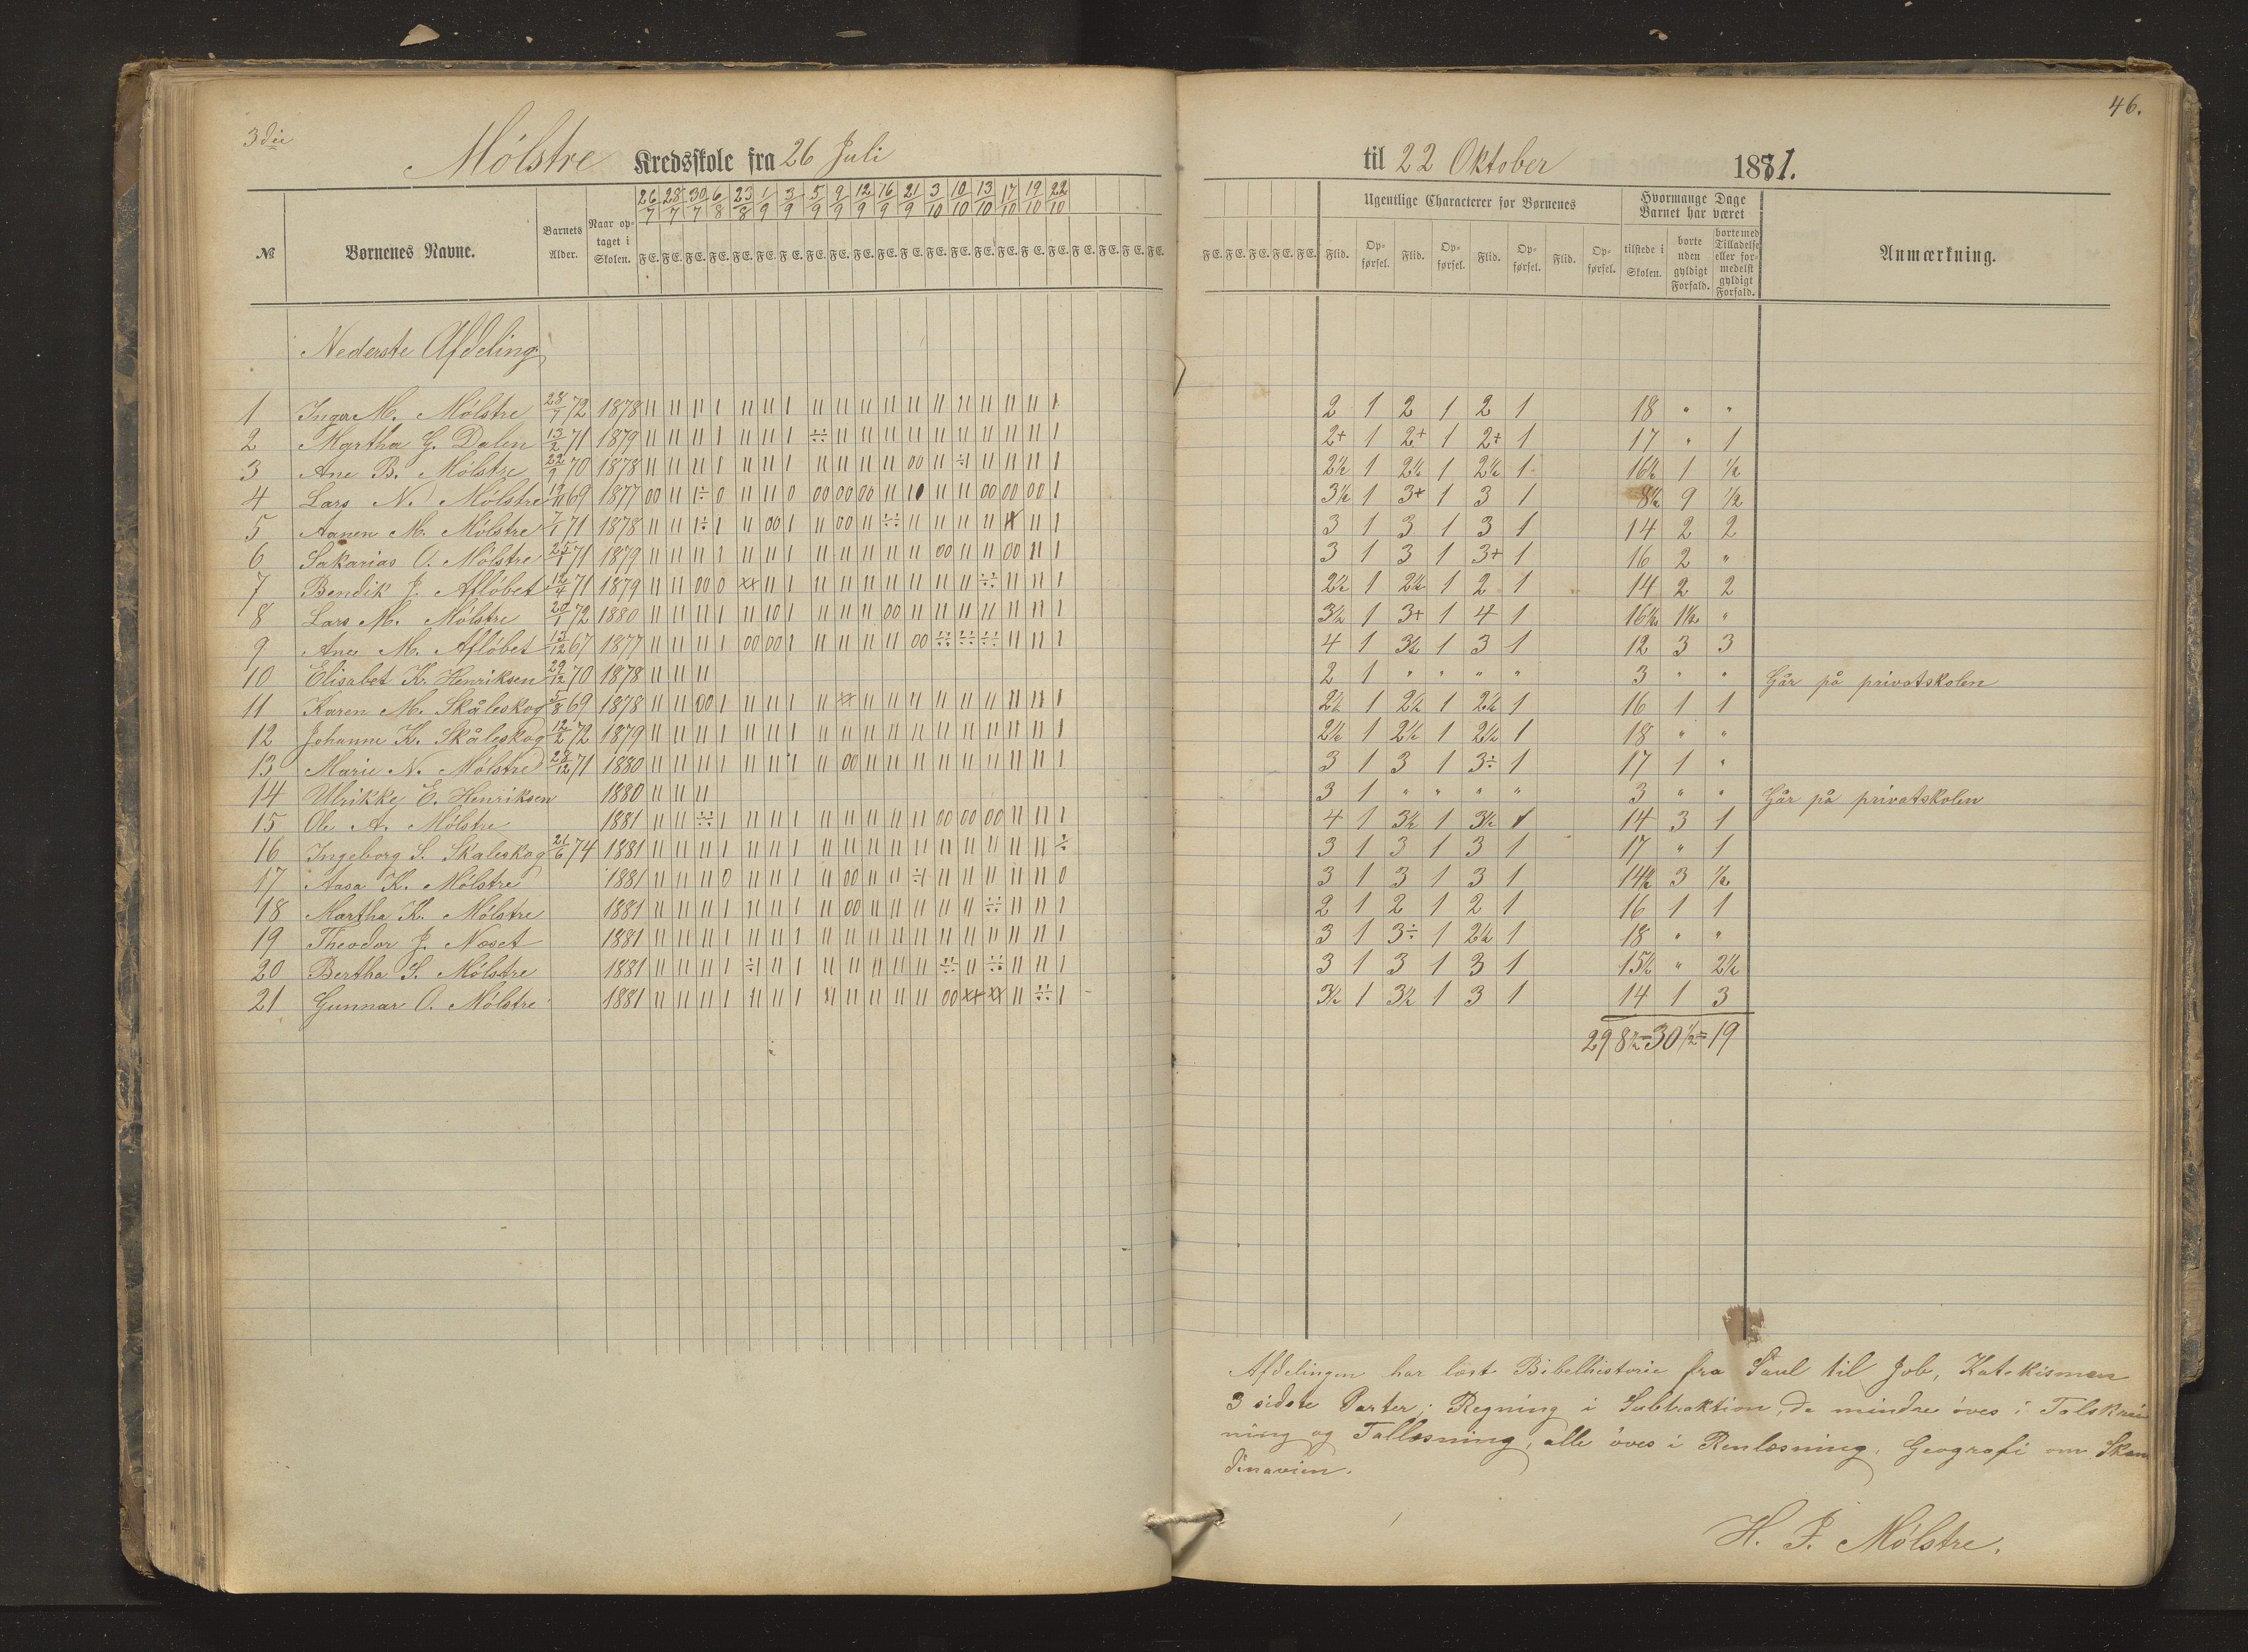 46.
3die
Mølstre Kredsskole fra 26 Juli til 22 Oktober 1881.
26/7 28/7 30/7 6/8 23/8 1/9 3/9 5/9 9/9 12/9 16/9 21/9 3/10 10/10 13/10 17/10 19/10 22/10
№ Børnenes Navne. Barnets Alder. Naar optaget i Skolen. F E. F E. F E. F E. F E. F E. F E. F E. F E. F E. F E. F E. F E. F E. F E. F E. F E. F E. F E. F E. F E. F E.
F E. F E. F E. F E. F E. Ugentlige Characterer for Børnenes Flid. Opførsel. Flid. Opførsel. Flid. Opførsel. Flid. Opførsel. Hvormange Dage Barnet har været tilstede i Skolen. borte uden gyldigt Forfald. borte med Tilladelse eller formedelst gyldigt Forfald. Anmærkning.
Nederste Afdeling
1 Inga M. Mølstre 28/7 72 1878 11 11 11 1 11 11 1 11 11 11 11 11 11 11 11 11 11 1 2 1 2 1 2 1 18 " "
2 Martha G. Dalen 13/2 71 1879 11 11 11 1 11 11 1 ÷÷ 11 11 11 11 11 11 11 11 11 1 2+ 1 2+ 1 2+ 1 17 " 1
3 Ane B. Mølstre 22/9 70 1878 11 11 11 1 11 11 1 11 11 11 11 00 11 ÷1 11 11 11 1 2½ 1 2½ 1 2½ 1 16½ 1 ½
4 Lars N. Mølstre 19/11 69 1877 00 11 1÷ 0 11 11 0 00 00 00 11 10 11 11 00 00 00 1 3½ 1 3+ 1 3 1 8½ 9 ½
5 Aanen M. Mølstre 7/1 71 1878 11 11 1÷ 1 11 00 1 11 00 11 ÷÷ 11 11 11 11 11 11 1 3 1 3 1 3 1 14 2 2
6 Sakarias O. Mølstre 25/1 71 1879 11 11 11 1 11 11 1 11 11 11 11 11 00 11 11 00 11 1 3 1 3 1 3+ 1 16 2 "
7 Bendik J. Afløbet 12/4 71 1879 11 11 00 0 xx 11 1 11 11 11 11 11 11 11 ÷÷ 11 11 1 2½ 1 2½ 1 2 1 14 2 2
8 Lars M. Mølstre 20/1 72 1880 11 11 11 1 11 10 1 11 11 11 00 11 11 11 11 11 11 1 3½ 1 3+ 1 4 1 16½ 1½ "
9 Ane M. Afløbet 13/12 67 1877 11 11 11 1 00 00 1 11 11 11 11 00 ÷÷ ÷÷ ÷÷ 11 11 1 4 1 3½ 1 3 1 12 3 3
10 Elisabet K. Henriksen 29/12 70 1878 11 11 11 2 1 " " " " 3 " " Går på privatskolen
11 Karen M. Skåleskog 5/8 69 1878 11 11 00 1 11 11 1 11 xx 11 11 11 11 11 11 11 11 1 2½ 1 2½ 1 2½ 1 16 1 1
12 Johanne K. Skåleskog 12/2 72 1879 11 11 11 1 11 11 1 11 11 11 11 11 11 11 11 11 11 1 2½ 1 2½ 1 2½ 1 18 " "
13 Marie N. Mølstre 28/12 71 1880 11 11 11 1 11 11 1 11 00 11 11 11 11 11 11 11 11 1 3 1 3 1 3÷ 1 17 1 "
14 Ulrikke E. Henriksen 1880 11 11 11 3 1 " " " " 3 " " Går på privatskolen
15 Ole A. Mølstre 1881 11 11 ÷÷ 1 11 11 1 11 11 11 11 11 00 00 00 11 11 1 4 1 3½ 1 3½ 1 14 3 1
16 Ingeborg S. Skaleskog 21/6 74 1881 11 11 11 1 11 11 1 11 11 11 11 11 11 11 11 11 11 ÷ 3 1 3 1 3 1 17 " 1
17 Aasa K. Mølstre 1881 11 11 11 0 11 11 1 11 00 11 11 ÷1 11 11 11 11 11 0 3 1 3 1 3 1 14½ 3 ½
18 Martha K. Mølstre 1881 11 11 11 1 11 11 1 11 00 11 11 11 11 11 ÷÷ 11 11 1 2 1 2 1 2 1 16 1 1
19 Theodor J. Næset 1881 11 11 11 1 11 11 1 11 11 11 11 11 11 11 11 11 11 1 3 1 3÷ 1 2½ 1 18 " "
20 Bertha S. Mølstre 1881 11 11 11 1 ÷1 11 1 11 11 11 11 11 ÷÷ 11 ÷÷ 11 11 1 3 1 3 1 3 1 15½ " 2½
21 Gunnar O. Mølstre 1881 11 11 11 1 11 11 1 11 11 11 11 11 00 xx xx 11 ÷÷ 1 3½ 1 3½ 1 3 1 14 1 3
298½ = 30½ = 19
Afdelingen har læst Bibelhistorie fra Saul til Job, Katekismen
3 sidste Parter; Regning i Subtraktion, de mindre øves i Talskriv
ning og Tallæsning, alle øves i Renlæsning. Geografi om Skan
dinavien.
H. J. Mølstre.